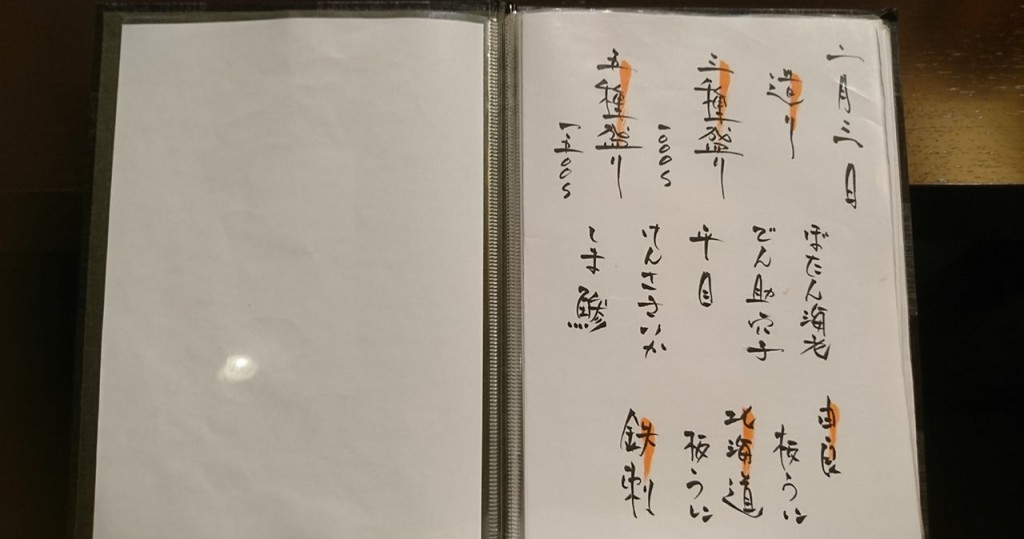 二月三日
造り
三種盛り
一〇〇〇S
五種盛り
一五〇〇S
ぼたん海老
でん助穴子
平目
けんさきいか
しま鯵
由良
板うに
北海道
板うに
鉄刺